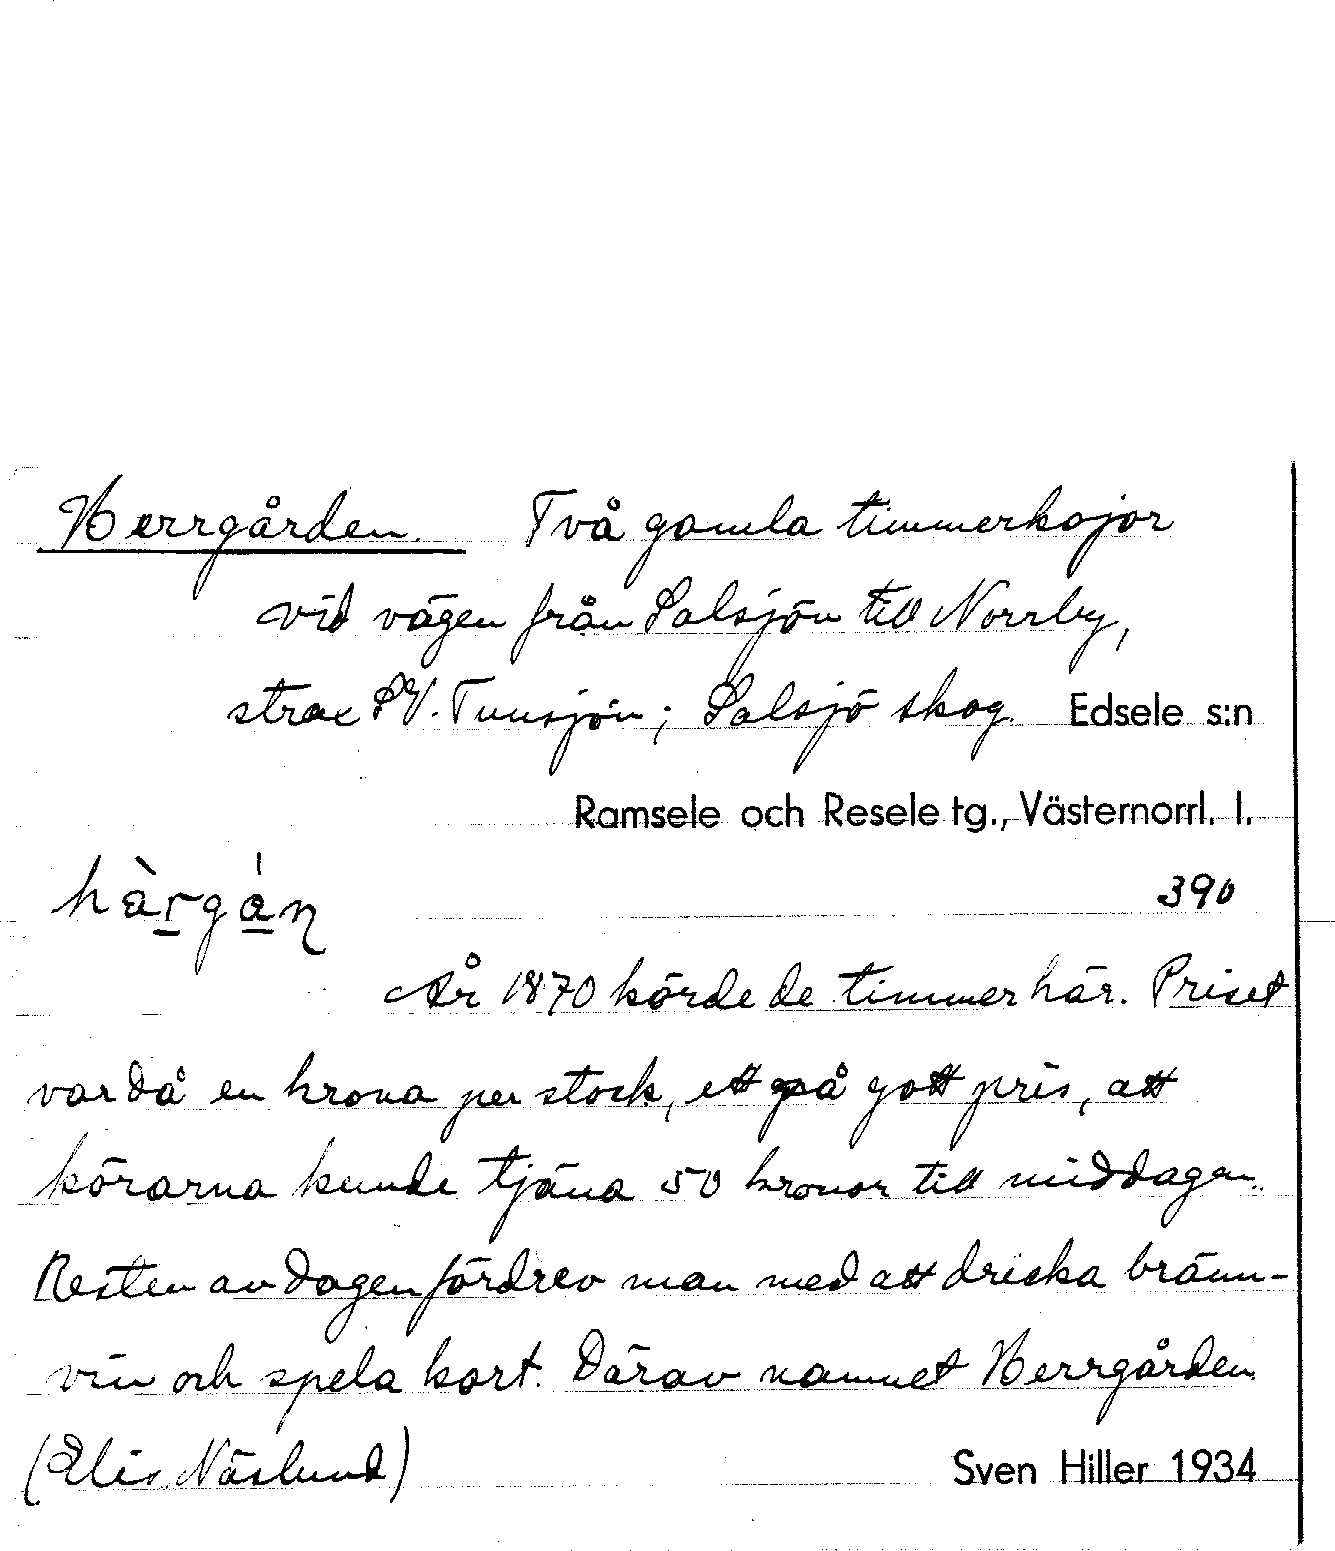 Herrgården. Två gamla timmerkojor
vid vägen från Salsjön till Norrby,
strax SV. Tunsjön; Salsjö skog. Edsele s:n
Ramsele och Resele tg., Västernorrl. l.
390
År 1870 körde de timmer här. Priset
var då en krona per stock, ett så gott pris, att
körarna kunde tjäna 50 kronor till middagen.
Resten av dagen fördrev man med att dricka bränn-
vin och spela kort. Därav namnet Herrgården
(Elis Näslund) Sven Hiller 1934